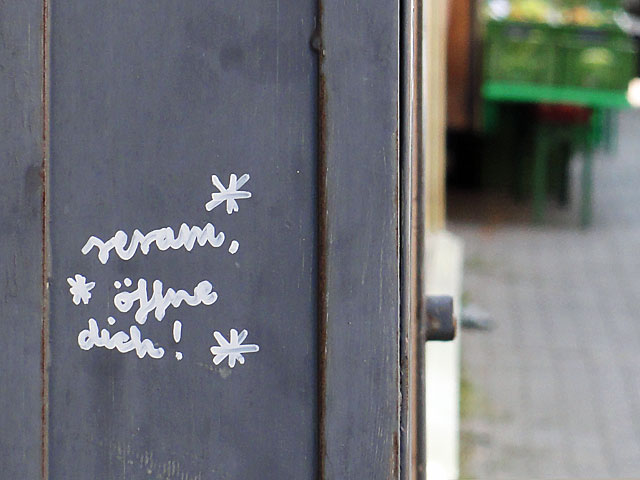 sesam,
öffne
dich!